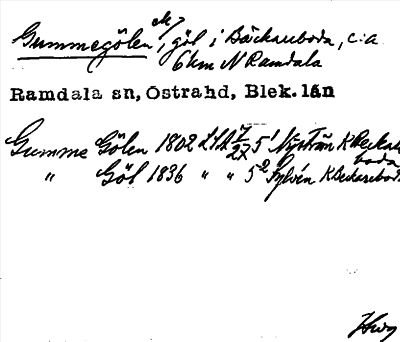 Gummegölen, göl i Bäckareboda, c:a
6 km N Ramdala
Ramdala sn, Östrahd, Blek. län
Gumme Gölen 1802 LSA 7/27 5¹ Nyström K Beckare
boda
" Göl 1836 " " 5² Sylvén K Beckareboda